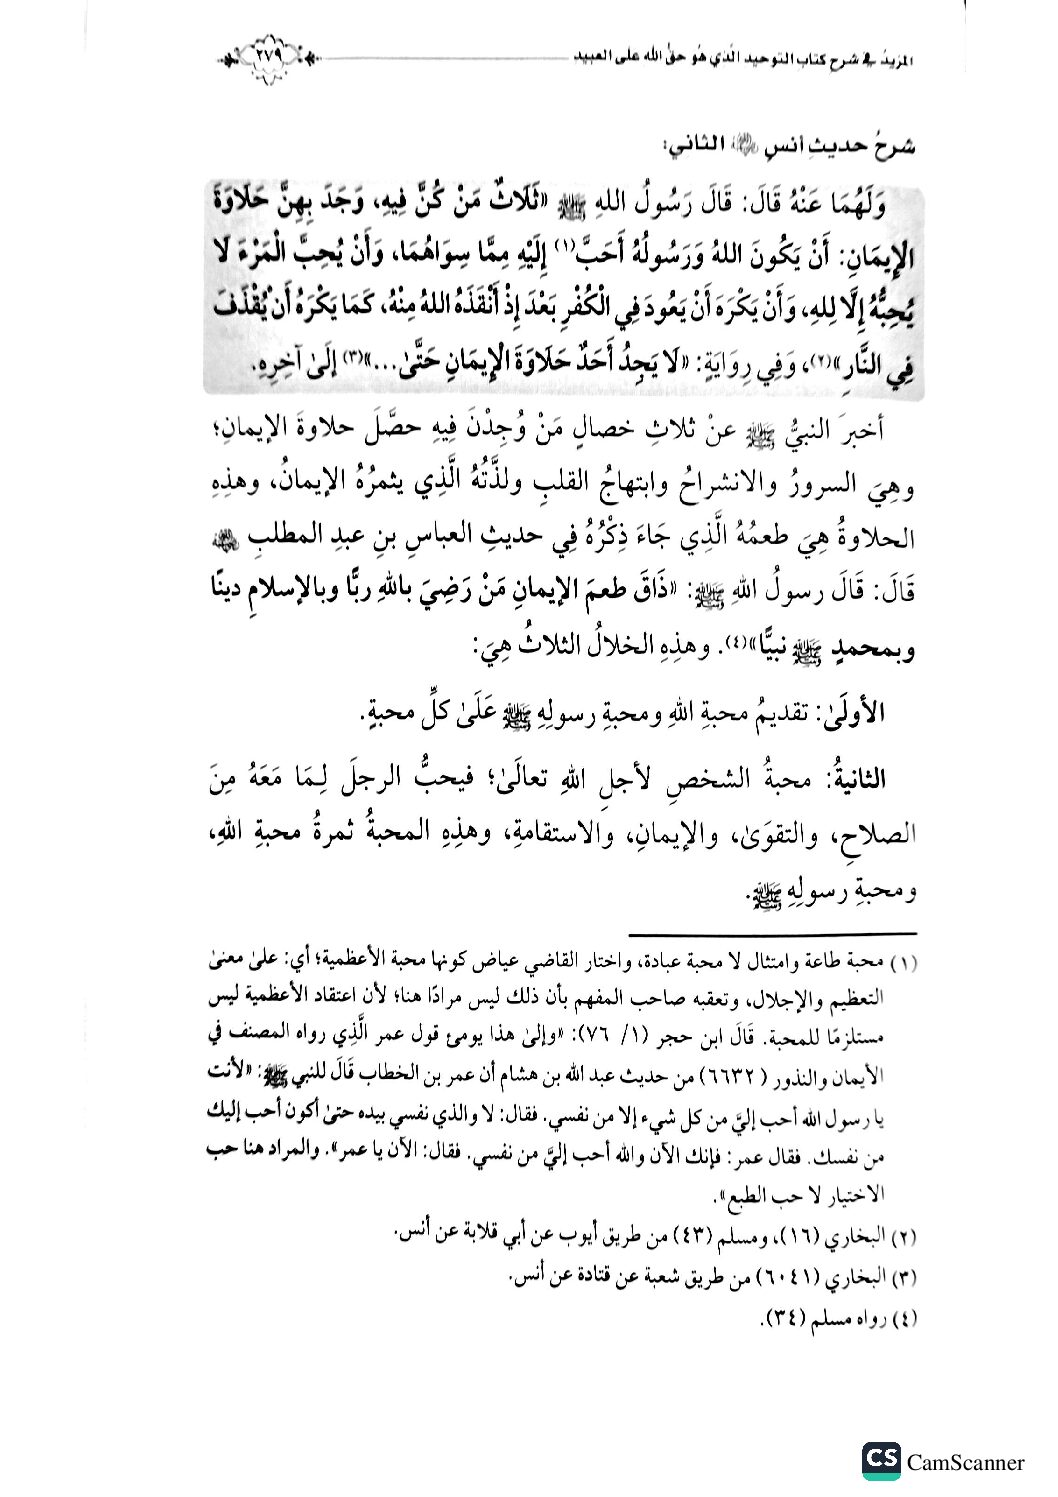 المزيد في شرح كتاب التوحيد الذي هو حق الله على العبيد
٢٧٩
شرحُ حديثِ أنسٍ رضي الله عنه الثاني:
وَلَهُمَا عَنْهُ قَالَ: قَالَ رَسُولُ اللهِ ﷺ «ثَلَاثٌ مَنْ كُنَّ فِيهِ، وَجَدَ بِهِنَّ حَلَاوَةَ
الإِيمَانِ: أَنْ يَكُونَ اللهُ وَرَسُولُهُ أَحَبَّ(١) إِلَيْهِ مِمَّا سِوَاهُمَا، وَأَنْ يُحِبَّ الْمَرْءَ لَا
يُحِبُّهُ إِلَّا لِلهِ، وَأَنْ يَكْرَهَ أَنْ يَعُودَ فِي الْكُفْرِ بَعْدَ إِذْ أَنْقَذَهُ اللهُ مِنْهُ، كَمَا يَكْرَهُ أَنْ يُقْذَفَ
فِي النَّارِ»(٢)، وَفِي رِوَايَةٍ: «لَا يَجِدُ أَحَدٌ حَلَاوَةَ الْإِيمَانِ حَتَّىٰ...»(٣) إِلَىٰ آخِرِهِ.
أخبرَ النبيُّ ﷺ عنْ ثلاثِ خصالٍ مَنْ وُجِدْنَ فِيهِ حصَّلَ حلاوةَ الإيمانِ؛
وهِيَ السرورُ والانشراحُ وابتهاجُ القلبِ ولذَّتُهُ الَّذِي يثمرُهُ الإيمانُ، وهذِهِ
الحلاوةُ هِيَ طعمُهُ الَّذِي جَاءَ ذِكْرُهُ فِي حديثِ العباسِ بنِ عبدِ المطلبِ رضي الله عنه
قَالَ: قَالَ رسولُ اللهِ ﷺ: «ذَاقَ طعمَ الإيمانِ مَنْ رَضِيَ باللهِ ربًّا وبالإسلامِ دينًا
وبمحمدٍ ﷺ نبيًّا»(٤). وهذِهِ الخلالُ الثلاثُ هِيَ:
الأولَىٰ: تقديمُ محبةِ اللهِ ومحبةِ رسولِهِ ﷺ عَلَىٰ كلِّ محبةٍ.
الثانيةُ: محبةُ الشخصِ لأجلِ اللهِ تعالَىٰ؛ فيحبُّ الرجلَ لِمَا مَعَهُ مِنَ
الصلاحِ، والتقوَىٰ، والإيمانِ، والاستقامةِ، وهذِهِ المحبةُ ثمرةُ محبةِ اللهِ،
ومحبةِ رسولِهِ ﷺ.
(١) محبة طاعة وامتثال لا محبة عبادة، واختار القاضي عياض كونها محبة الأعظمية؛ أي: علىٰ معنىٰ
التعظيم والإجلال، وتعقبه صاحب المفهم بأن ذلك ليس مرادًا هنا؛ لأن اعتقاد الأعظمية ليس
مستلزمًا للمحبة. قَالَ ابن حجر (١/ ٧٦): «وإلىٰ هذا يومئ قول عمر الَّذي رواه المصنف في
الأيمان والنذور (٦٦٣٢) من حديث عبد الله بن هشام أن عمر بن الخطاب قَالَ للنبي ﷺ: «لأنت
يا رسول الله أحب إليَّ من كل شيء إلا من نفسي. فقال: لا والذي نفسي بيده حتىٰ أكون أحب إليك
من نفسك. فقال عمر: فإنك الآن والله أحب إليَّ من نفسي. فقال: الآن يا عمر». والمراد هنا حب
الاختيار لا حب الطبع».
(٢) البخاري (١٦)، ومسلم (٤٣) من طريق أيوب عن أبي قلابة عن أنس.
(٣) البخاري (٦٠٤١) من طريق شعبة عن قتادة عن أنس.
(٤) رواه مسلم (٣٤).
CS CamScanner